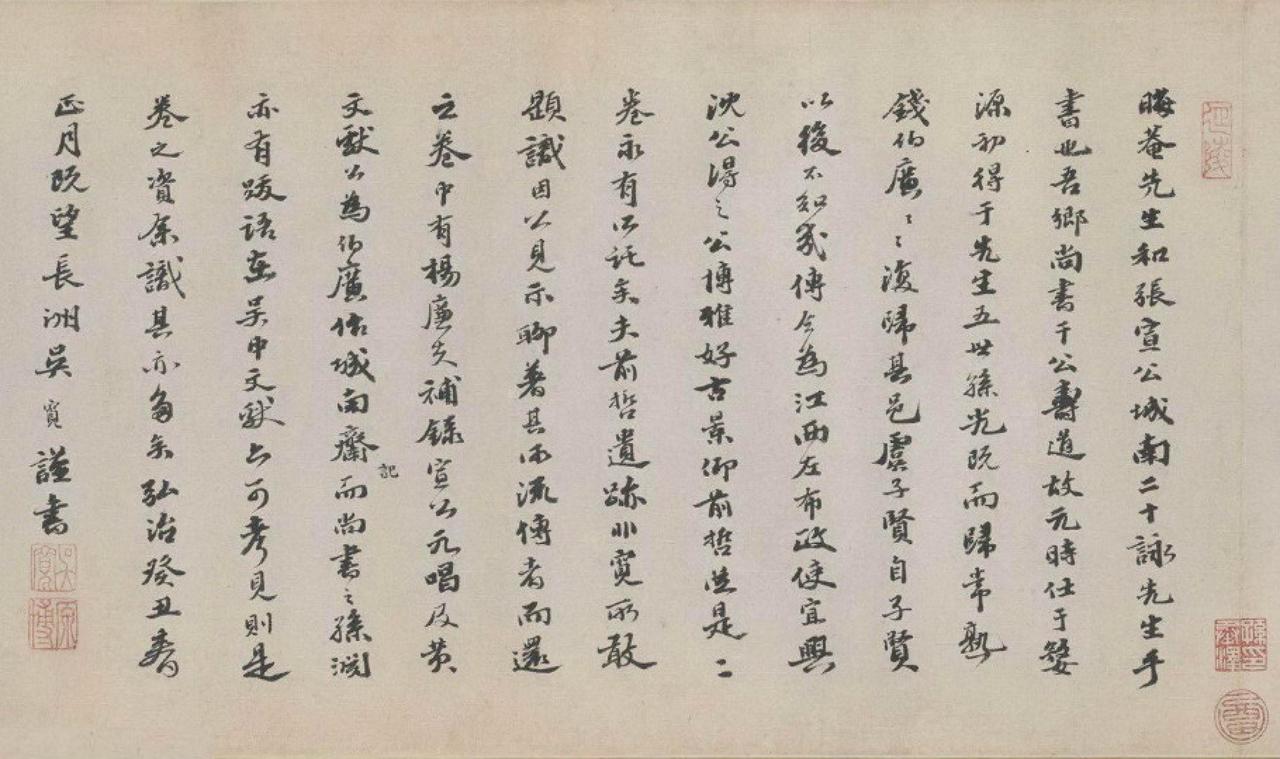 晦菴先生和張宣公城南二十詠先生手
書也吾鄉尚書干公壽道故元時仕于婺
源初得于先生五世孫光既而歸常熟
錢伯廣〻復歸其邑虞子賢自子賢
以後不知幾傳今為江西左布政使宜興
沈公得之公博雅好古景仰前哲
卷永有所託矣夫前哲遺跡非寬所敢
題識因以見示聊著其所流傳者而還
之卷中有楊廉夫補錄宣公元唱及黃
文獻公為伯廣作城南齋記而尚書之孫淵
亦有跋語在吳中文獻上可考見則是
卷之資余識其亦多矣弘治癸丑春
正月既望長洲吳寬謹書
吳寬
原博